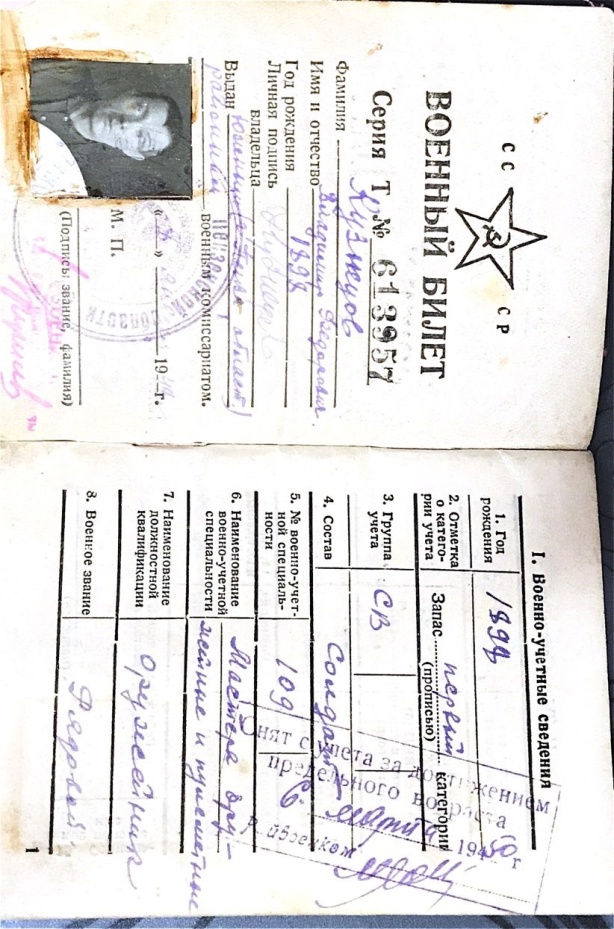 СС СР
ВОЕННЫЙ БИЛЕТ
Серия Т № 613957
Фамилия Кузнецов
Имя и отчество Владимир Федорович
Год рождения 1898
Личная подпись
владельца
Выдан
районным военным комиссариатом.
М. П. 19 г.
(Подпись, звание, фамилия)
I. Военно-учетные сведения
1. Год
рождения 1898
2. Отметка
о катего-
рии учета
Запас первый категории
(прописью)
3. Группа
учета СВ
4. Состав Солдат
5. № военно-учет-
ной специаль-
ности 109
6. Наименование
военно-учетной
специальности
Мастера ору-
жейные и пулеметные
7. Наименование
должностной
квалификации оружейник
8. Военное звание Рядовой
Снят с учета за достижением
предельного возраста
марта 1950 г
Райвоенком
1